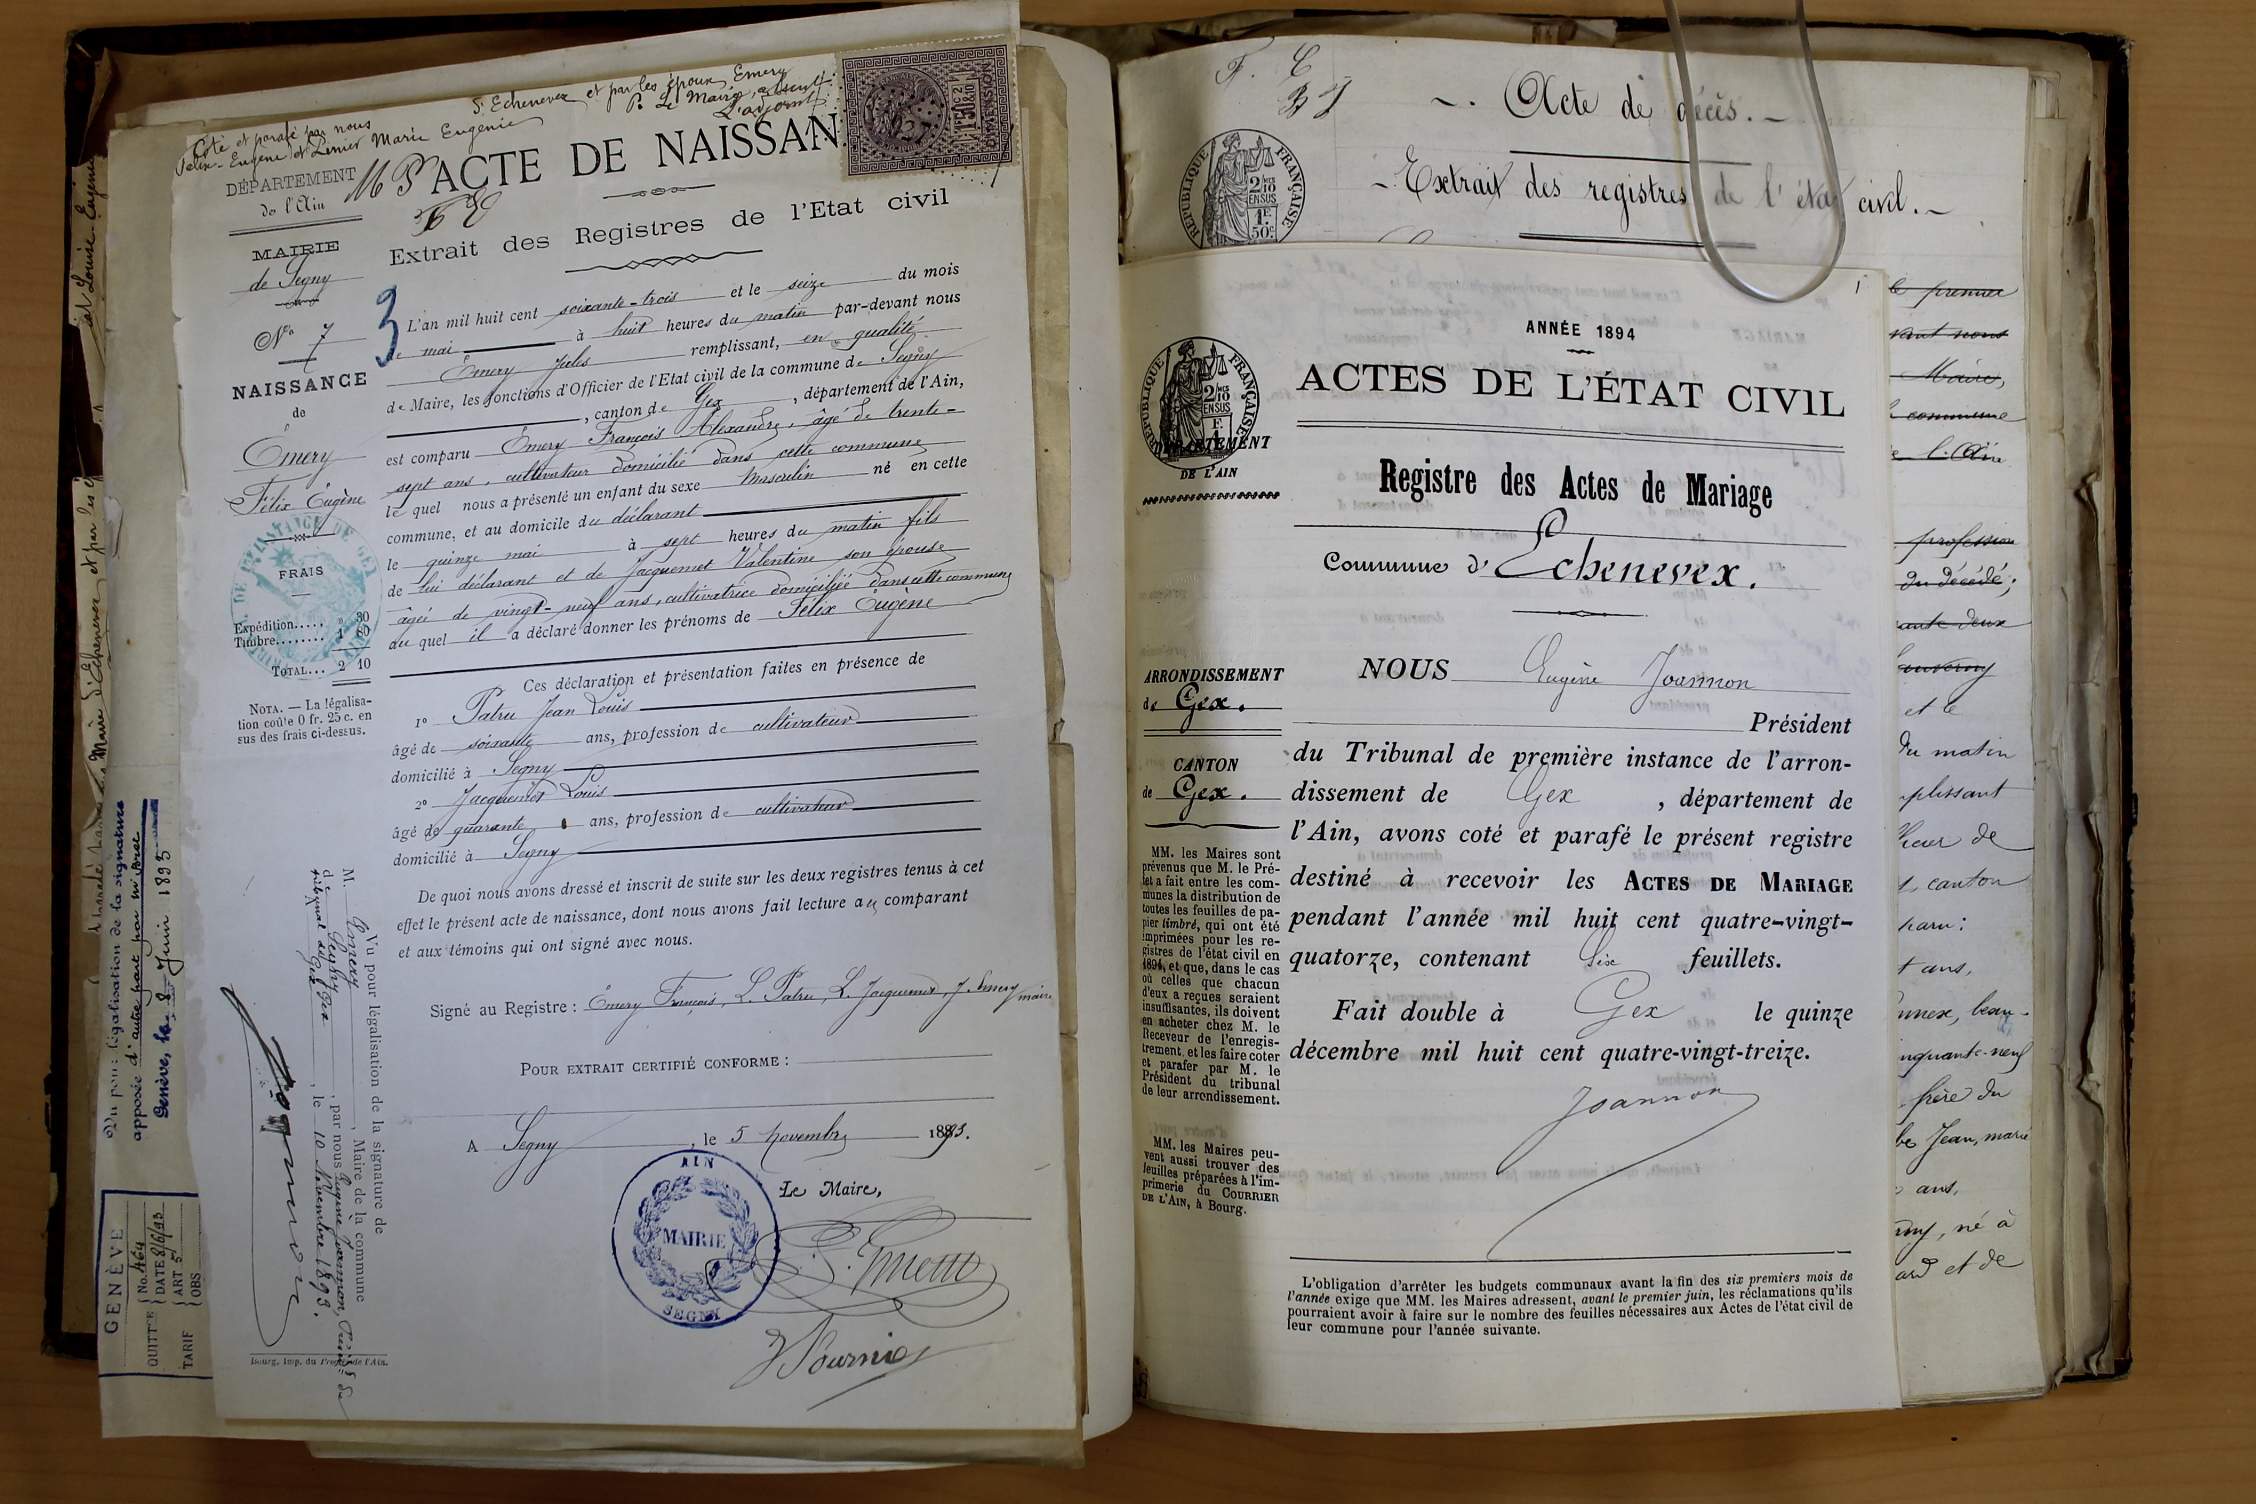 Coté et parafé par nous
S. Echenevex et par les époux Emery
Felix-Eugène et Pernier Marie Eugénie
P. Le Maire, absent
L'adjoint
DÉPARTEMENT
de l'Ain
MAIRIE
de Segny
No 7
NAISSANCE
de
Émery
Félix Eugène
FRAIS
Expédition..... » 30
Timbre........ 1 80
TOTAL... 2 10
NOTA. — La légalisa-
tion coûte 0 fr. 25 c. en
sus des frais ci-dessus.
ACTE DE NAISSAN
Extrait des Registres de l'Etat civil
3
L'an mil huit cent soixante-trois et le seize du mois
de mai à huit heures du matin par-devant nous
Émery Jules remplissant, en qualité
de Maire, les fonctions d'Officier de l'Etat civil de la commune de Segny
, canton de Gex, département de l'Ain,
est comparu Émery François Alexandre, âgé de trente-
sept ans, cultivateur domicilié dans cette commune
lequel nous a présenté un enfant du sexe masculin né en cette
commune, et au domicile du déclarant
le quinze mai à sept heures du matin fils
de lui déclarant et de Jacquemet Valentine son épouse
âgée de vingt-neuf ans, cultivatrice domiciliée dans cette commune
auquel il a déclaré donner les prénoms de Félix Eugène
Ces déclaration et présentation faites en présence de
1º Patru Jean Louis
âgé de soixante ans, profession de cultivateur
domicilié à Segny
2º Jacquemet Louis
âgé de quarante ans, profession de cultivateur
domicilié à Segny
De quoi nous avons dressé et inscrit de suite sur les deux registres tenus à cet
effet le présent acte de naissance, dont nous avons fait lecture au comparant
et aux témoins qui ont signé avec nous.
Signé au Registre : Émery François, L. Patru, L. Jacquemet, J. Emery maire
POUR EXTRAIT CERTIFIÉ CONFORME :
A Segny, le 5 novembre 1893.
Le Maire,
AIN
MAIRIE
SEGNY
Vu pour légalisation de la signature de
M. Emery, Maire de la commune
de Segny, par nous Eugène Joannon, Président du
tribunal de Gex, le 10 Novembre 1893.
Bourg, Imp. du Progrès de l'Ain.
Vu pour légalisation de la signature
apposée d'autre part par M.
Genève, le 8 Juin 1893
GENÈVE
QUITT'E
No. 464
DATE 8/6/93
ART 5
TARIF
OBS
DIMENSION
F. C
Acte de décès.
Extrait des registres de l'état civil.
RÉPUBLIQUE FRANÇAISE
2/10 EN SUS
1F. 50c.
le premier
vant nous
Maire,
commune
l'Ain
profession
du décédé;
ante deux
et le
du matin
plissant
canton
paru:
t ans,
beau-
nquante-neuf
frère du
Jean, marié
ans,
né à
et de
1
ANNÉE 1894
ACTES DE L'ÉTAT CIVIL
Registre des Actes de Mariage
Commune d'Echenevex.
RÉPUBLIQUE FRANÇAISE
2/10 EN SUS
DÉPARTEMENT
DE L'AIN
ARRONDISSEMENT
de Gex.
CANTON
de Gex.
MM. les Maires sont
prévenus que M. le Pré-
fet a fait entre les com-
munes la distribution de
toutes les feuilles de pa-
pier timbré, qui ont été
imprimées pour les re-
gistres de l'état civil en
1894, et que, dans le cas
où celles que chacun
d'eux a reçues seraient
insuffisantes, ils doivent
en acheter chez M. le
Receveur de l'enregis-
trement, et les faire coter
et parafer par M. le
Président du tribunal
de leur arrondissement.
MM. les Maires peu-
vent aussi trouver des
feuilles préparées à l'im-
primerie du COURRIER
DE L'AIN, à Bourg.
NOUS Eugène Joannon
Président
du Tribunal de première instance de l'arron-
dissement de Gex, département de
l'Ain, avons coté et parafé le présent registre
destiné à recevoir les ACTES DE MARIAGE
pendant l'année mil huit cent quatre-vingt-
quatorze, contenant six feuillets.
Fait double à Gex le quinze
décembre mil huit cent quatre-vingt-treize.
Joannon
L'obligation d'arrêter les budgets communaux avant la fin des six premiers mois de
l'année exige que MM. les Maires adressent, avant le premier juin, les réclamations qu'ils
pourraient avoir à faire sur le nombre des feuilles nécessaires aux Actes de l'état civil de
leur commune pour l'année suivante.